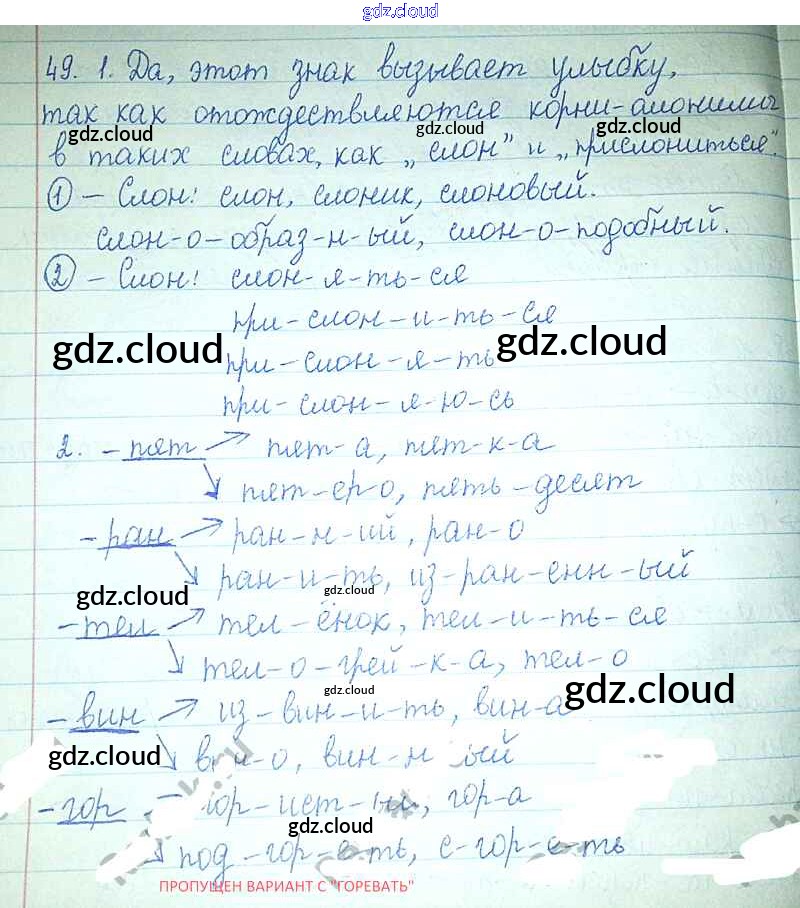 gdz.cloud
49. 1. Да, этот знак вызывает улыбку,
так как отождествляются корни-омонимы
gdz.cloud gdz.cloud gdz.cloud
в таких словах, как „слон" и „прислониться".
① – Слон: слон, слоник, слоновый.
слон-о-образ-н-ый, слон-о-подобный.
② – Слон: слон-я-ть-ся
при-слон-и-ть-ся
gdz.cloud gdz.cloud
при-слон-я-ть
при-слон-я-ю-сь
2. -пят → пят-а, пят-к-а
↘ пят-ер-о, пять-десят
-ран → ран-н-ий, ран-о
↘ ран-и-ть, из-ран-енн-ый
gdz.cloud gdz.cloud
-тел → тел-ёнок, тел-и-ть-ся
gdz.cloud
↘ тел-о-грей-к-а, тел-о
gdz.cloud gdz.cloud
-вин → из-вин-и-ть, вин-а
gdz.cloud
↘ в о, вин-н ый
-гор гор-ист-ый, гор-а
gdz.cloud
↘ под-гор-е-ть, с-гор-е-ть
ПРОПУЩЕН ВАРИАНТ С "ГОРЕВАТЬ"